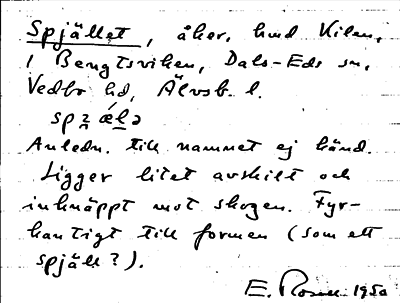 Spjället, åker, hmd Kilen,
i Bengtsviken, Dals-Eds sn,
Vedbo hd, Älvsb. l.
spʒ ǽlə
Anledn. till namnet ej känd.
Ligger litet avskilt och
inknäppt mot skogen. Fyr-
kantigt till formen (som ett
spjäll?).
E. 1950